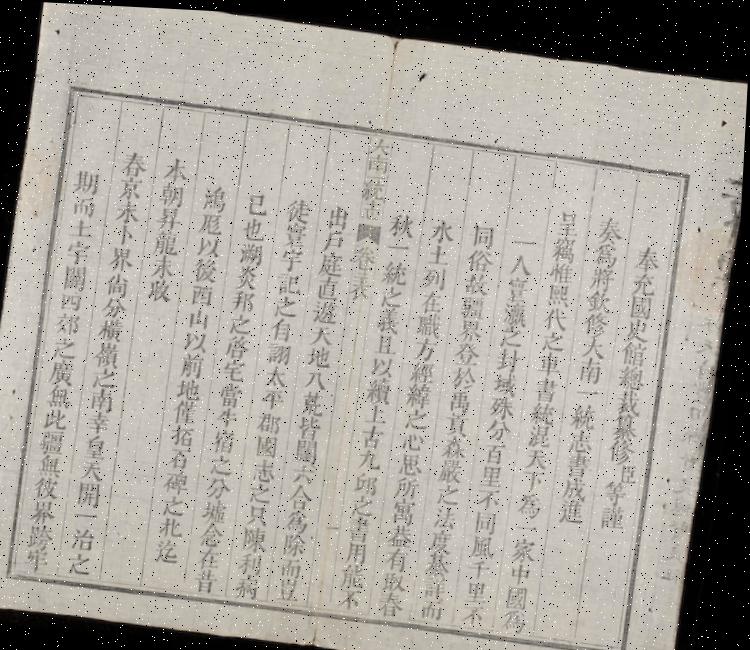 奉充國史館總裁纂修臣 等謹
奏爲將欽修大南一統志書成進
呈竊惟熙代之車書統混天下爲一家中國爲
一人寰瀛之封域殊分百里不同風千里不
同俗故疆界 於禹貢森嚴之法度 詳而
水土列在職方經緯之心思所寓盖有取春
秋一統之義且以續上古九邱之書用能不
出戶庭直邊大地八荒皆闢六合為除而豈
大南一統志 卷之 表
徒寰宇記之自詡太平郡國志之只陳利病
已也溯炎邦之啓宅當牛宿之分墟念在昔
鴻厖以後西山以前地僅拓石碑之北迄
本朝昇龍未改
春京未卜界尚分橫嶺之南幸皇天開一治之
期而土宇闢四郊之廣無此疆無彼界跨牢